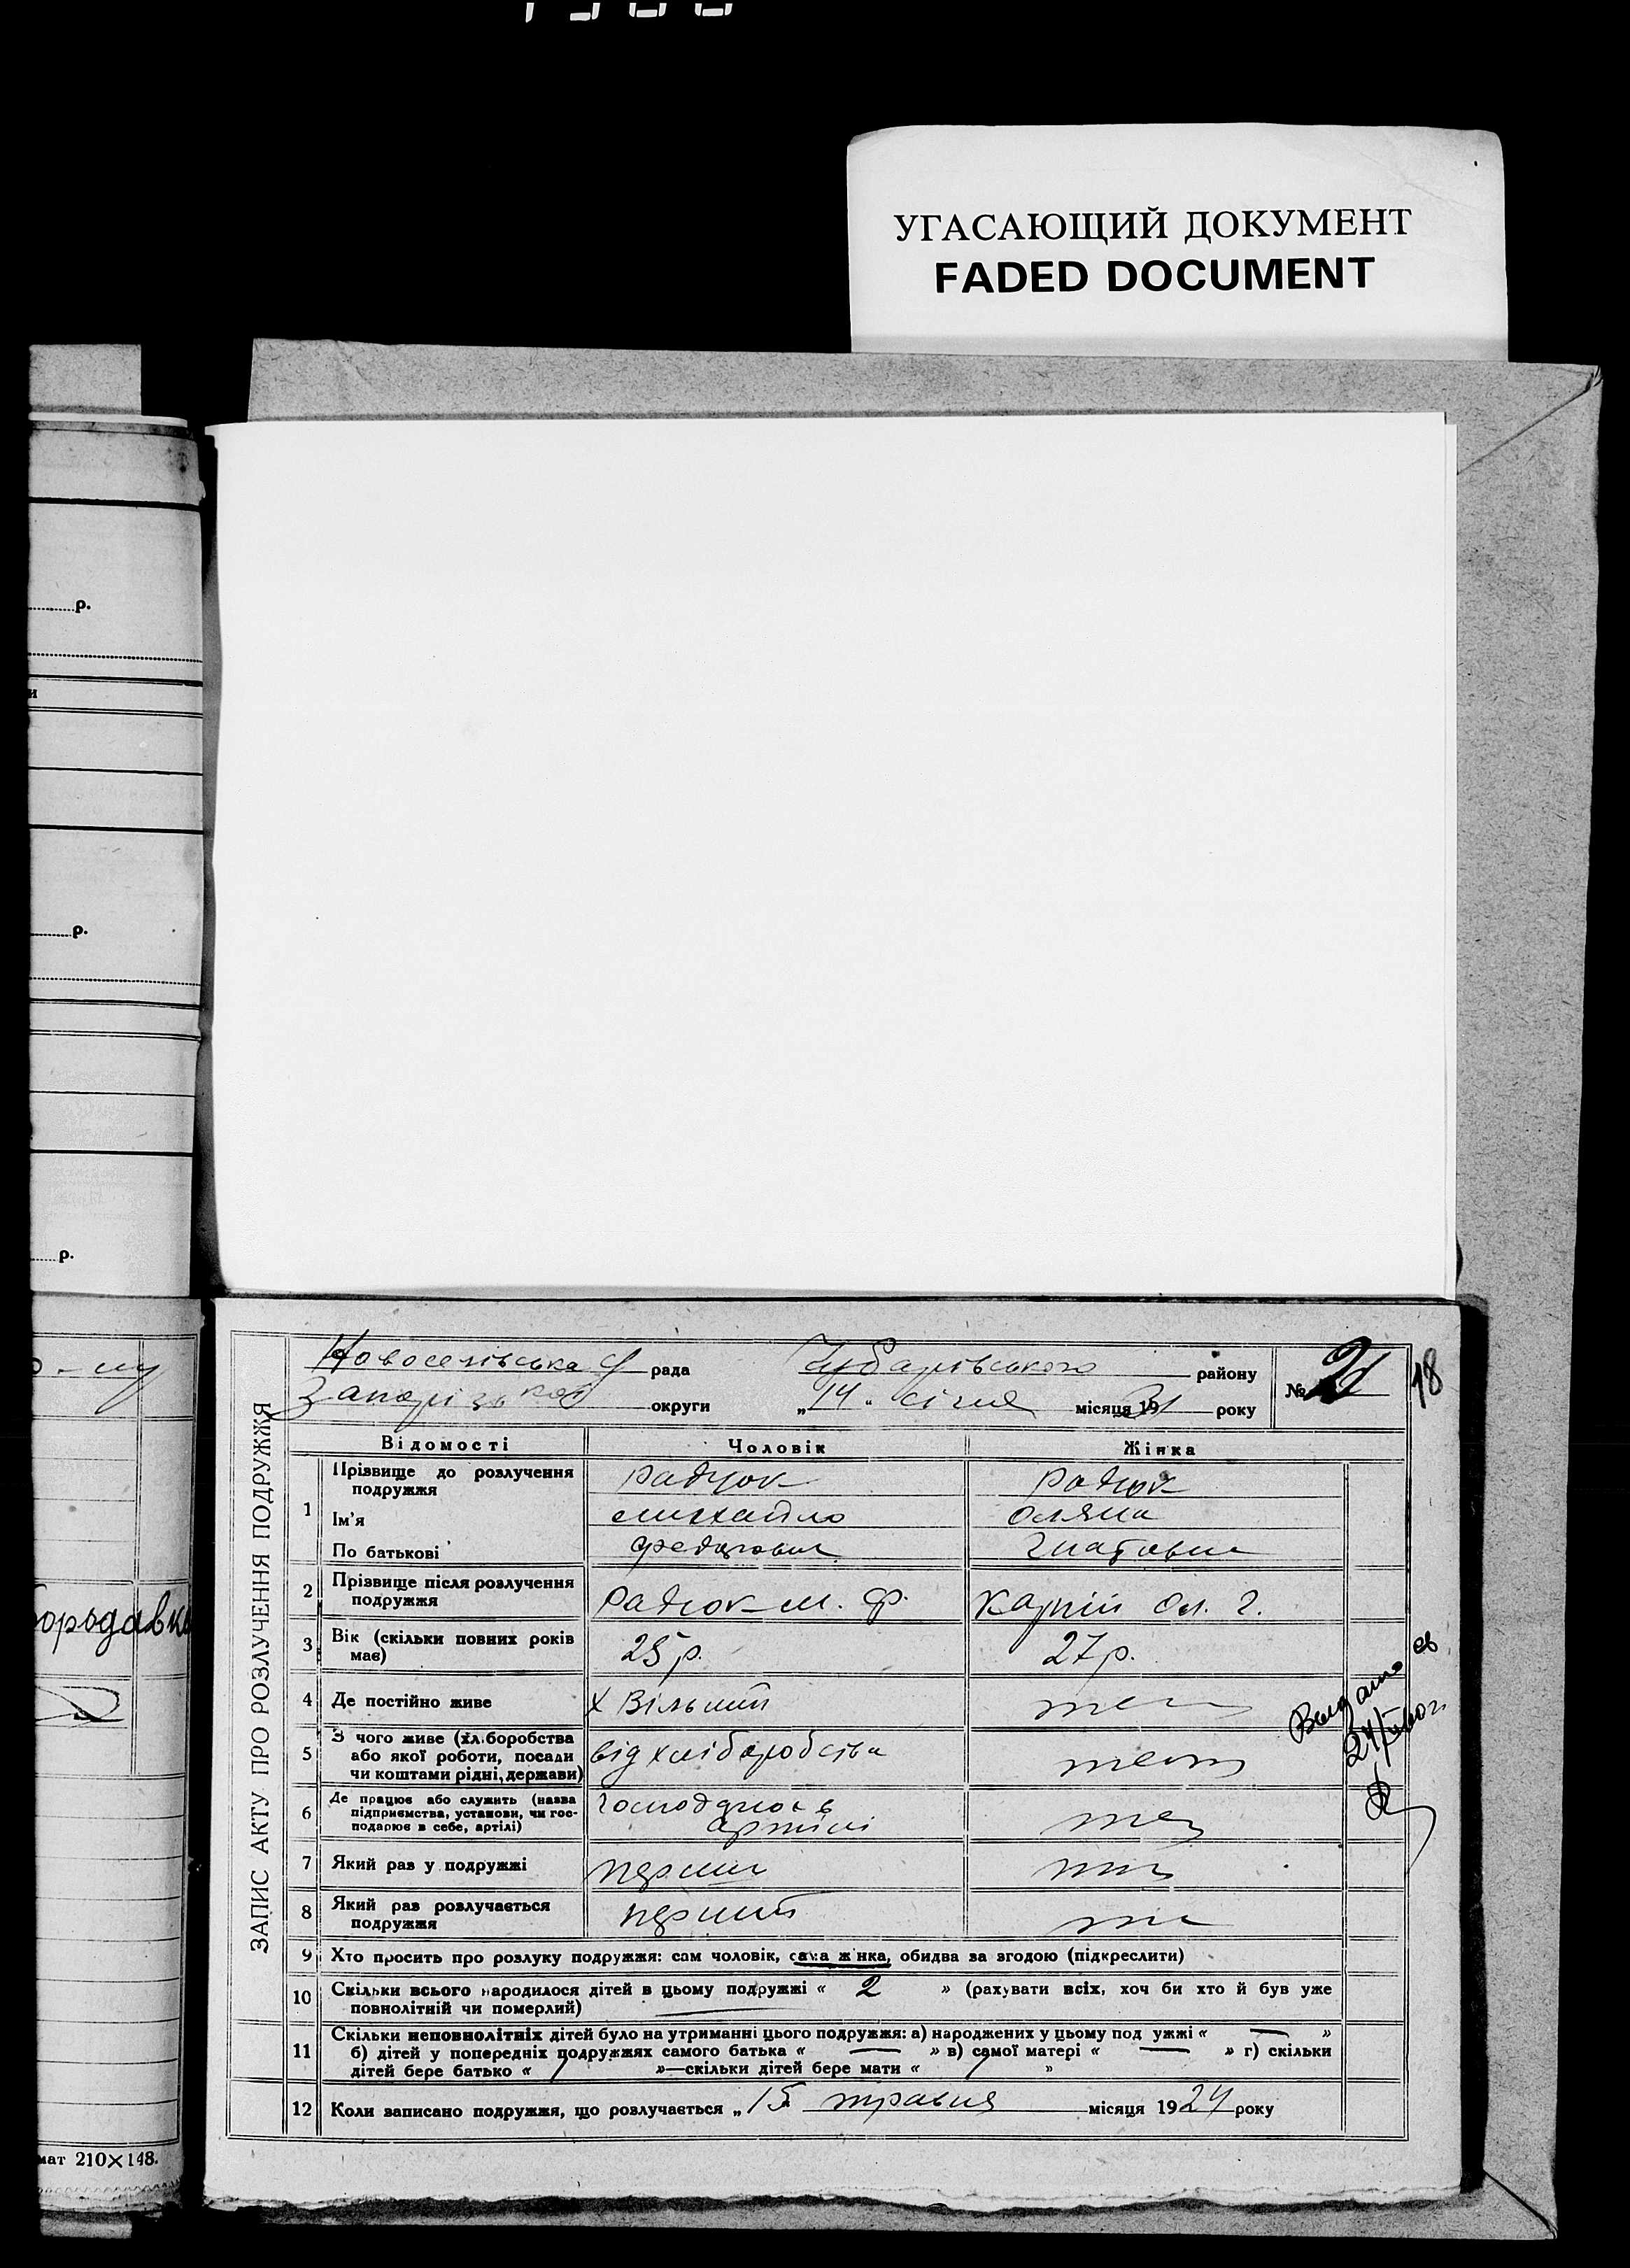 УГАСАЮЩИЙ ДОКУМЕНТ
FADED DOCUMENT
р.
и
р.
р.
мат 210×148.
ЗАПИС АКТУ ПРО РОЗЛУЧЕННЯ ПОДРУЖЖЯ
Новоселівська рада Чубарівського району № 2 18
Запорізької округи „14" січня місяця 1931 року
Відомості Чоловік Жінка
1 Прізвище до розлучення подружжя Радчок Радчок
Ім'я Михайло Оляна
По батькові Федорович Гнатовна
2 Прізвище після розлучення подружжя Радчок М. Ф. Карпій Ол. Г.
3 Вік (скільки повних років має) 25 р. 27 р.
4 Де постійно живе х Вільний
5 З чого живе (хліборобства або якої роботи, посади чи коштами рідні, держави) від хліборобства
6 Де працює або служить (назва підприємства, установи, чи господарює в себе, артілі) артілі
7 Який раз у подружжі перший
8 Який раз розлучається подружжя перший
9 Хто просить про розлуку подружжя: сам чоловік, сама жінка, обидва за згодою (підкреслити)
10 Скільки всього народилося дітей в цьому подружжі « 2 » (рахувати всіх, хоч би хто й був уже
повнолітній чи померлий)
11 Скільки неповнолітніх дітей було на утриманні цього подружжя: а) народжених у цьому под ужжі « — »
б) дітей у попередніх подружжях самого батька « — » в) самої матері « — » г) скільки
дітей бере батько « / »—скільки дітей бере мати « / »
12 Коли записано подружжя, що розлучається „ 15 травня місяця 1924 року